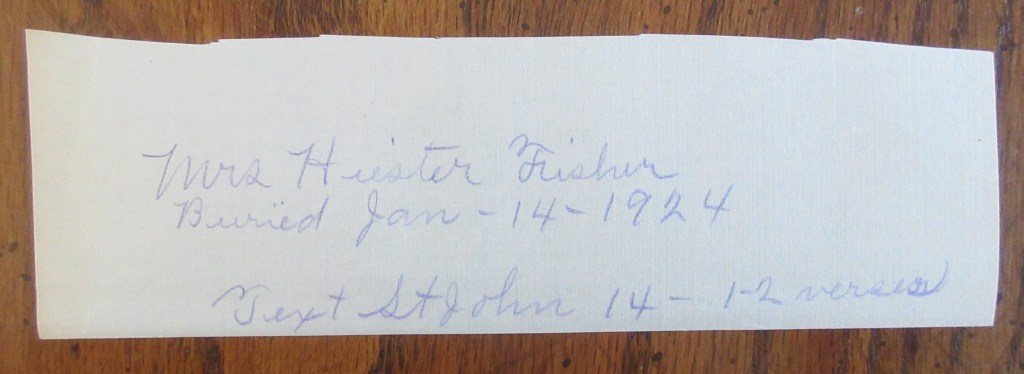 Mrs Hiester Fisher
Buried Jan - 14 - 1924
Text St John 14 - 1-2 verses